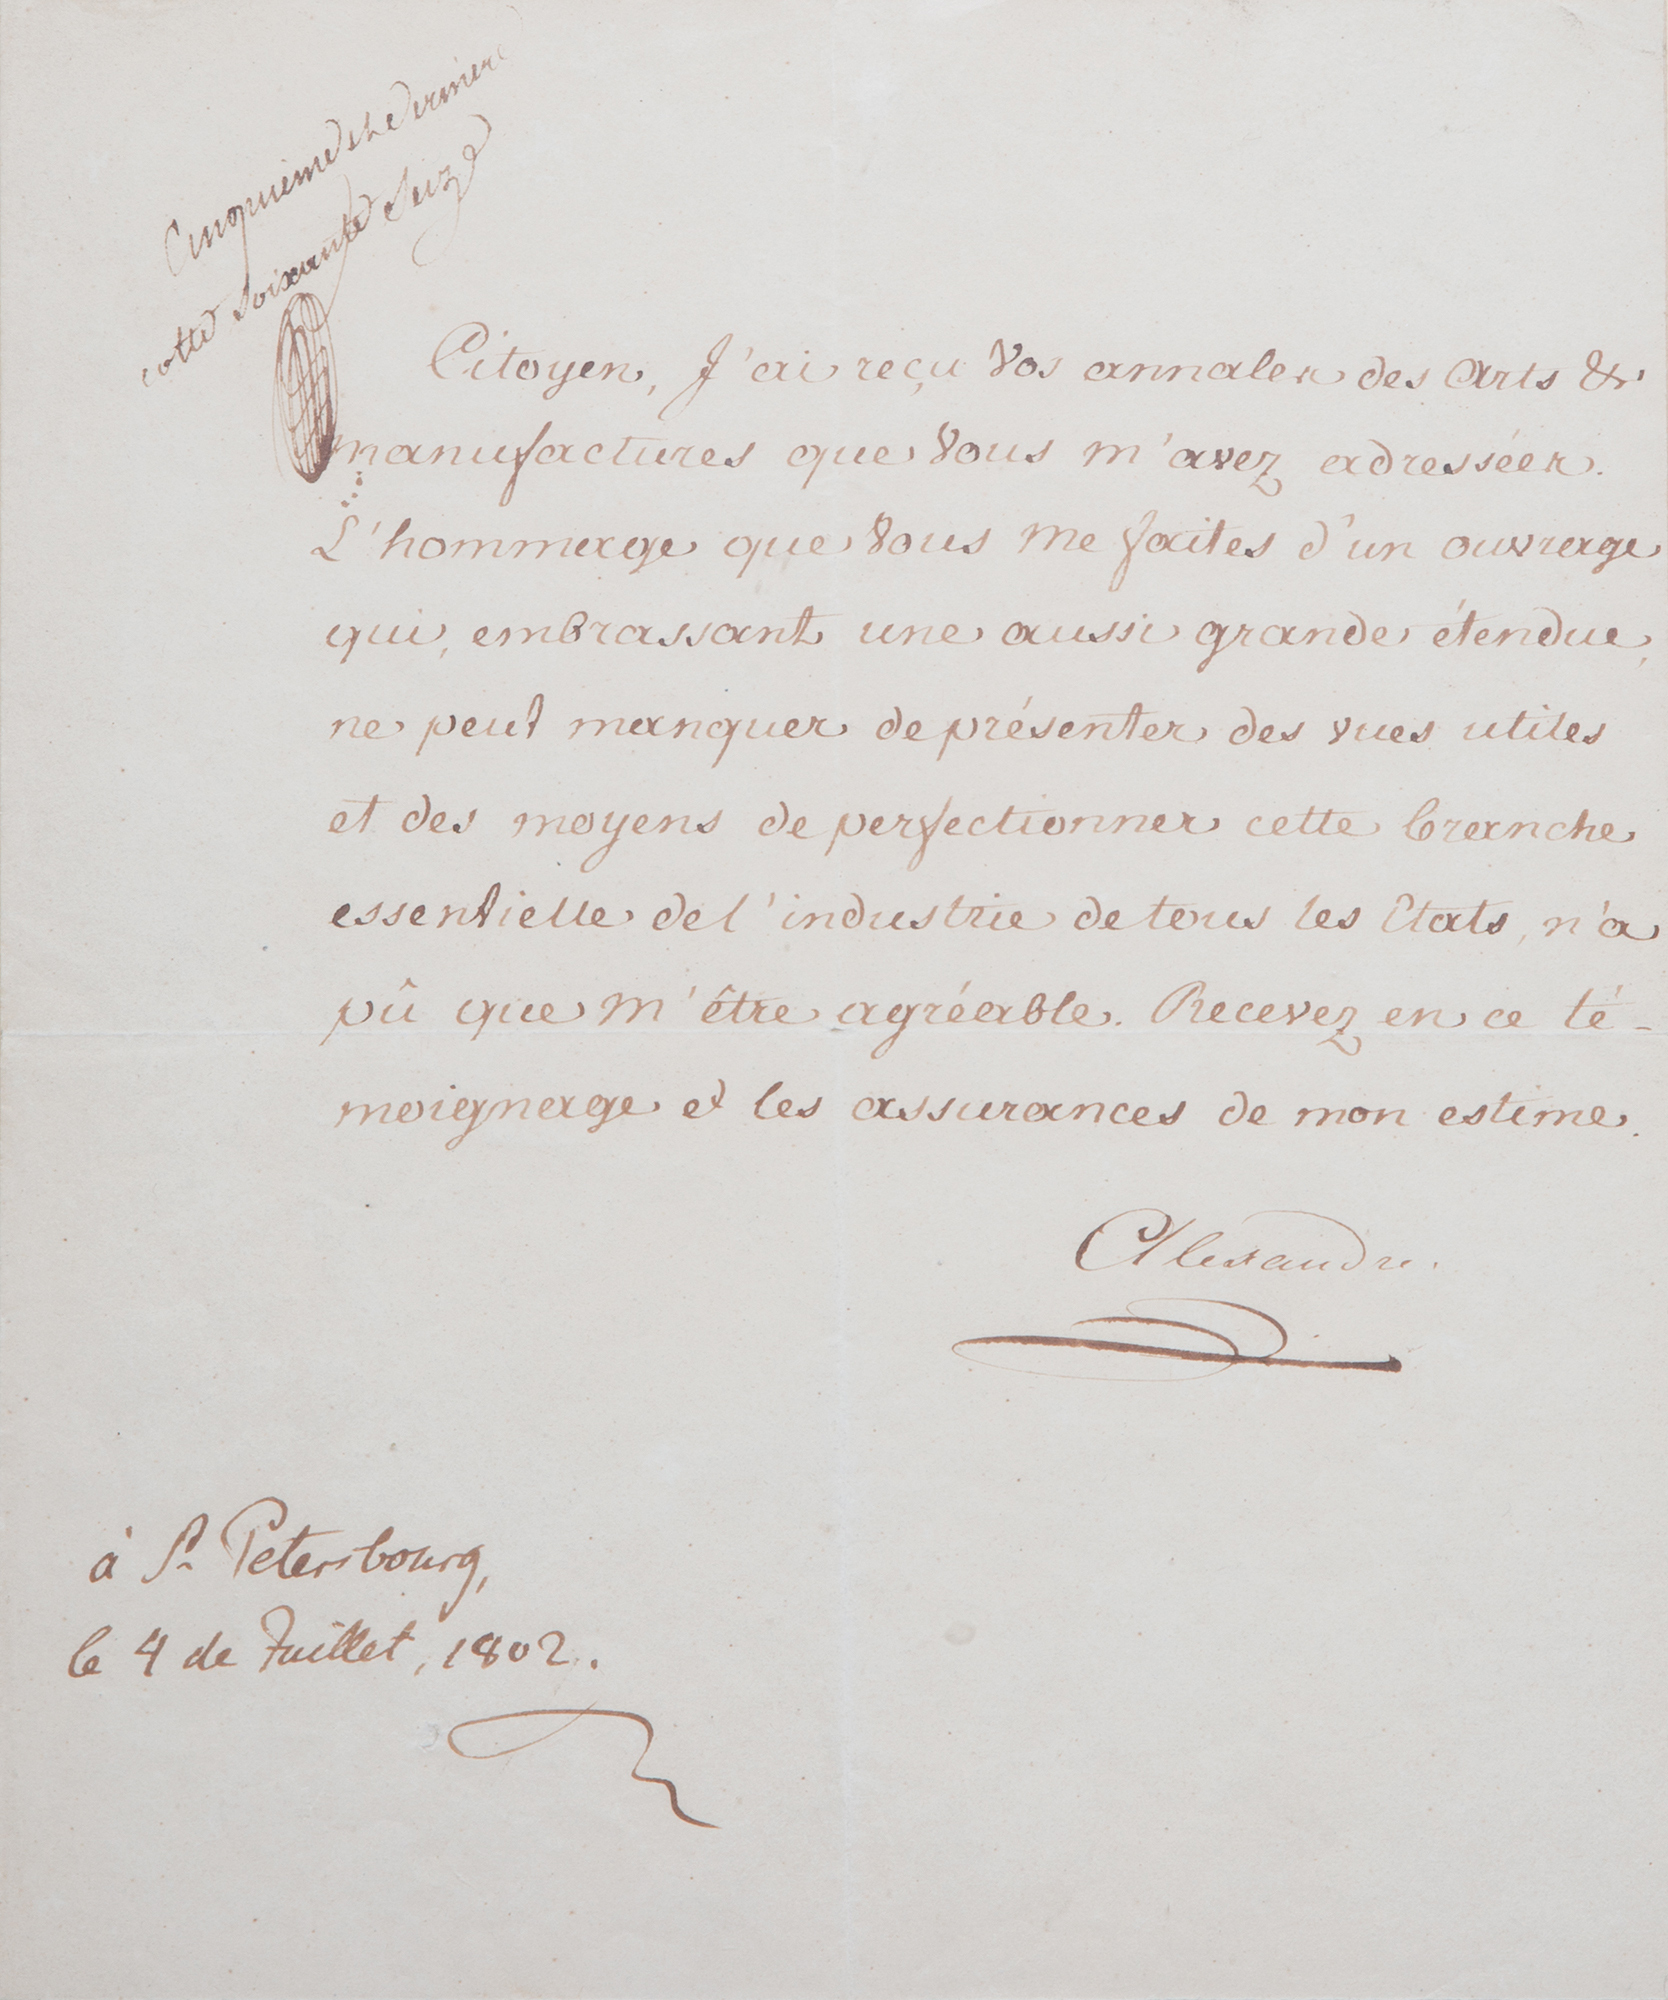 Cinquieme et derniere
cotte soixante Seize
Citoyen, J'ai reçu Vos annales des Arts &
manufactures que Vous m'avez adressées.
L'hommage que Vous me faites d'un ouvrage
qui, embrassant une aussi grande étendue,
ne peut manquer de présenter des vues utiles
et des moyens de perfectionner cette branche
essentielle de l'industrie de tous les Etats, n'a
pû que m'être agréable. Recevez en ce té-
moignage et les assurances de mon estime.
Alexandre.
à St Petersbourg,
le 4 de Juillet, 1802.